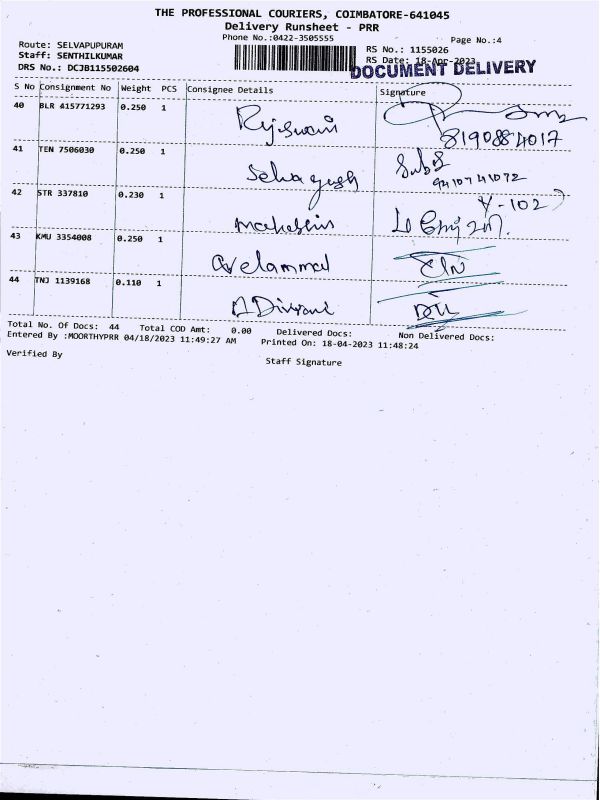 THE PROFESSIONAL COURIERS, COIMBATORE-641045
Delivery Runsheet - PRR
Phone No.:0422-3505555
Page No.:4
Route: SELVAPUPURAM
RS No.: 1155026
Staff: SENTHILKUMAR
RS Date: 18-Apr-2023
DRS No.: DCJB115502604
DOCUMENT DELIVERY
S No Consignment No Weight PCS Consignee Details Signature
40 BLR 415771293 0.250 1
8190884017
41 TEN 7506030 0.250 1
9410741072
42 STR 337810 0.230 1
Y-102
43 KMU 3354008 0.250 1 velammal
44 TNJ 1139168 0.110 1
Total No. Of Docs: 44 Total COD Amt: 0.00 Delivered Docs: Non Delivered Docs:
Entered By :MOORTHYPRR 04/18/2023 11:49:27 AM Printed On: 18-04-2023 11:48:24
Verified By
Staff Signature